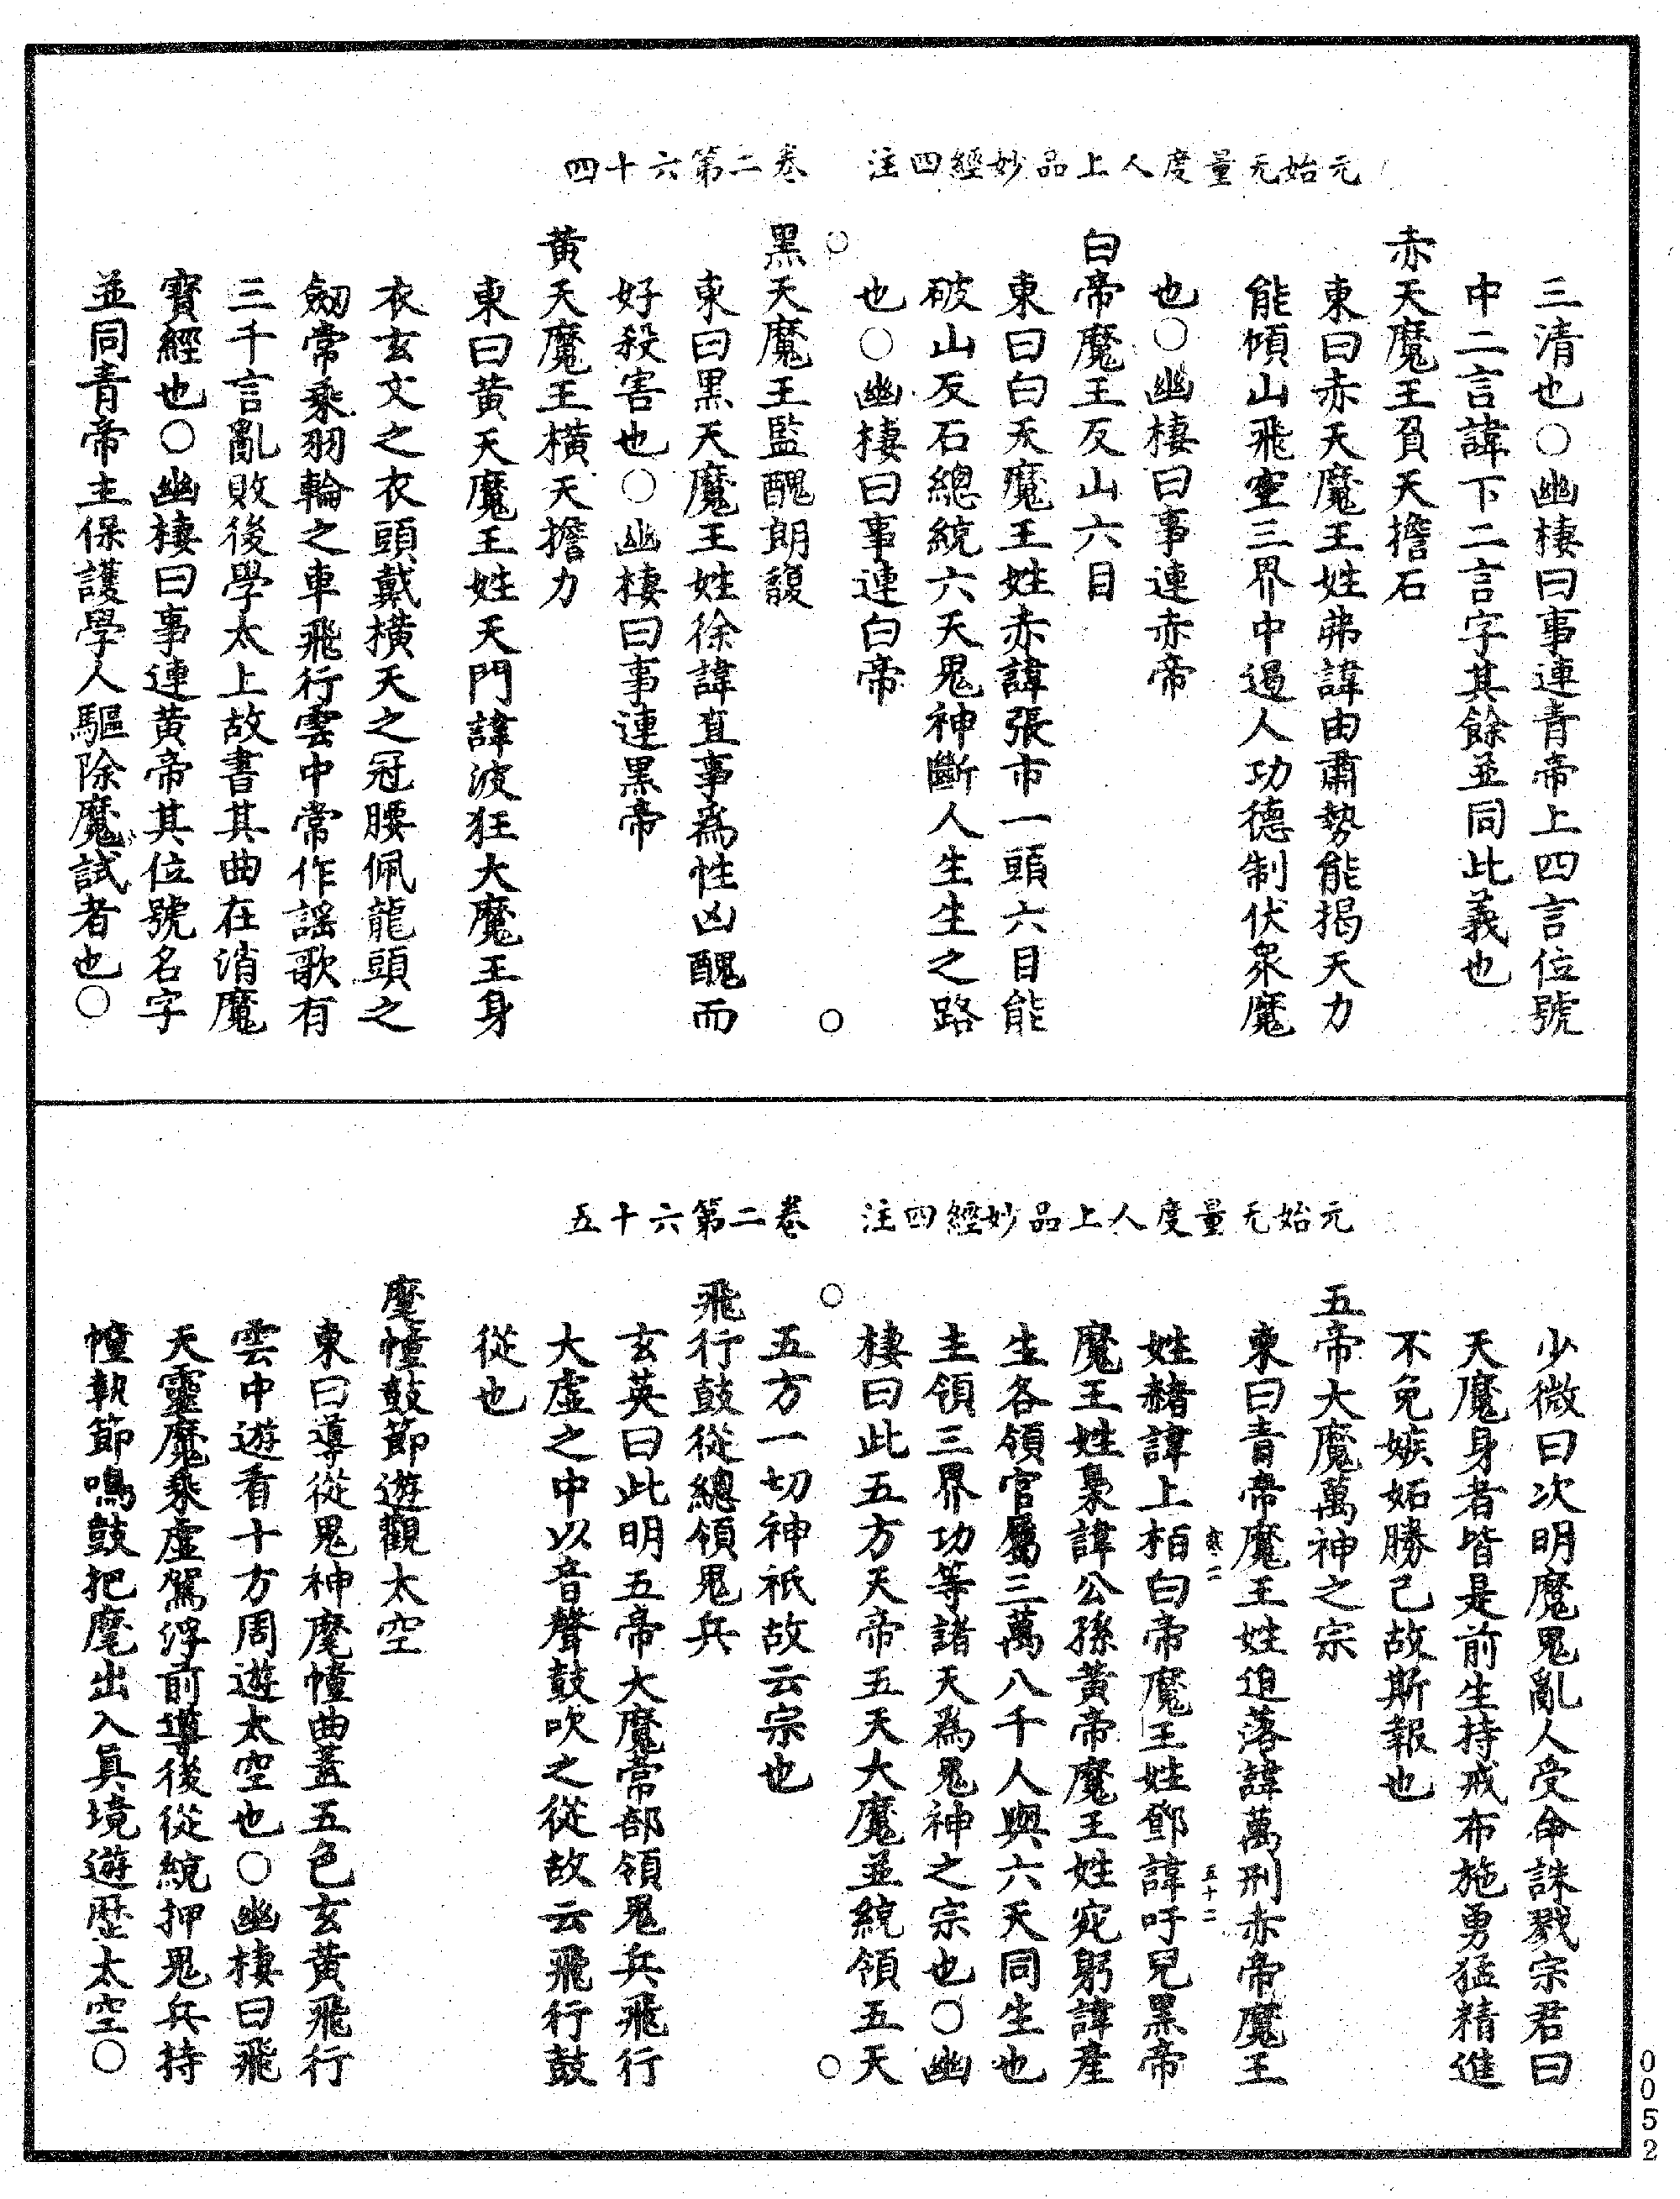 元始无量度人上品妙經四注　卷二第六十四
三清也○幽棲曰事連青帝上四言位號
中二言諱下二言字其餘並同此義也
赤天魔王負天擔石
東曰赤天魔王姓弗諱由肅勢能揭天力
能傾山飛空三界中遏人功德制伏衆魔
也○幽棲曰事連赤帝
白帝魔王反山六目
東曰白天魔王姓赤諱張市一頭六目能
破山反石總統六天鬼神斷人生生之路
也○幽棲曰事連白帝
○　○
黑天魔王監醜朗馥
東曰黑天魔王姓徐諱直事爲性凶醜而
好殺害也○幽棲曰事連黑帝
黃天魔王橫天擔力
東曰黃天魔王姓天門諱波狂大魔王身
衣玄文之衣頭戴橫天之冠腰佩龍頭之
劒常乘羽輪之車飛行雲中常作謠歌有
三千言亂敗後學太上故書其曲在消魔
寶經也○幽棲曰事連黃帝其位號名字
並同青帝主保護學人驅除魔試者也○
元始无量度人上品妙經四注　卷二第六十五
少微曰次明魔鬼亂人受命誅戮宗君曰
天魔身者皆是前生持戒布施勇猛精進
不免嫉妬勝己故斯報也
五帝大魔萬神之宗
東曰青帝魔王姓迫落諱萬刑赤帝魔王
五十二
姓赭諱上栢白帝魔王姓鄧諱吁兒黑帝
魔王姓梟諱公孫黃帝魔王姓宛躬諱產
生各領官屬三萬八千人與六天同生也
主領三界功等諸天爲鬼神之宗也○幽
棲曰此五方天帝五天大魔並統領五天
○　○
五方一切神祇故云宗也
飛行鼓從總領鬼兵
玄英曰此明五帝大魔常部領鬼兵飛行
大虛之中以音聲鼓吹之從故云飛行鼓
從也
麾幢鼓節遊觀太空
東曰導從鬼神麾幢曲蓋五色玄黃飛行
雲中遊看十方周遊太空也○幽棲曰飛
天靈魔乘虛駕浮前導後從統押鬼兵持
幢執節鳴鼓把麾出入真境遊歷太空○
0052